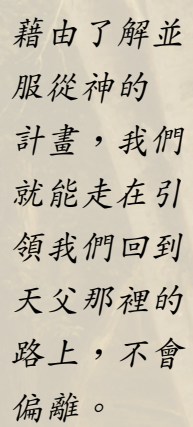 藉由了解並
服從神的
計畫，我們
就能走在引
領我們回到
天父那裡的
路上，不會
偏離。